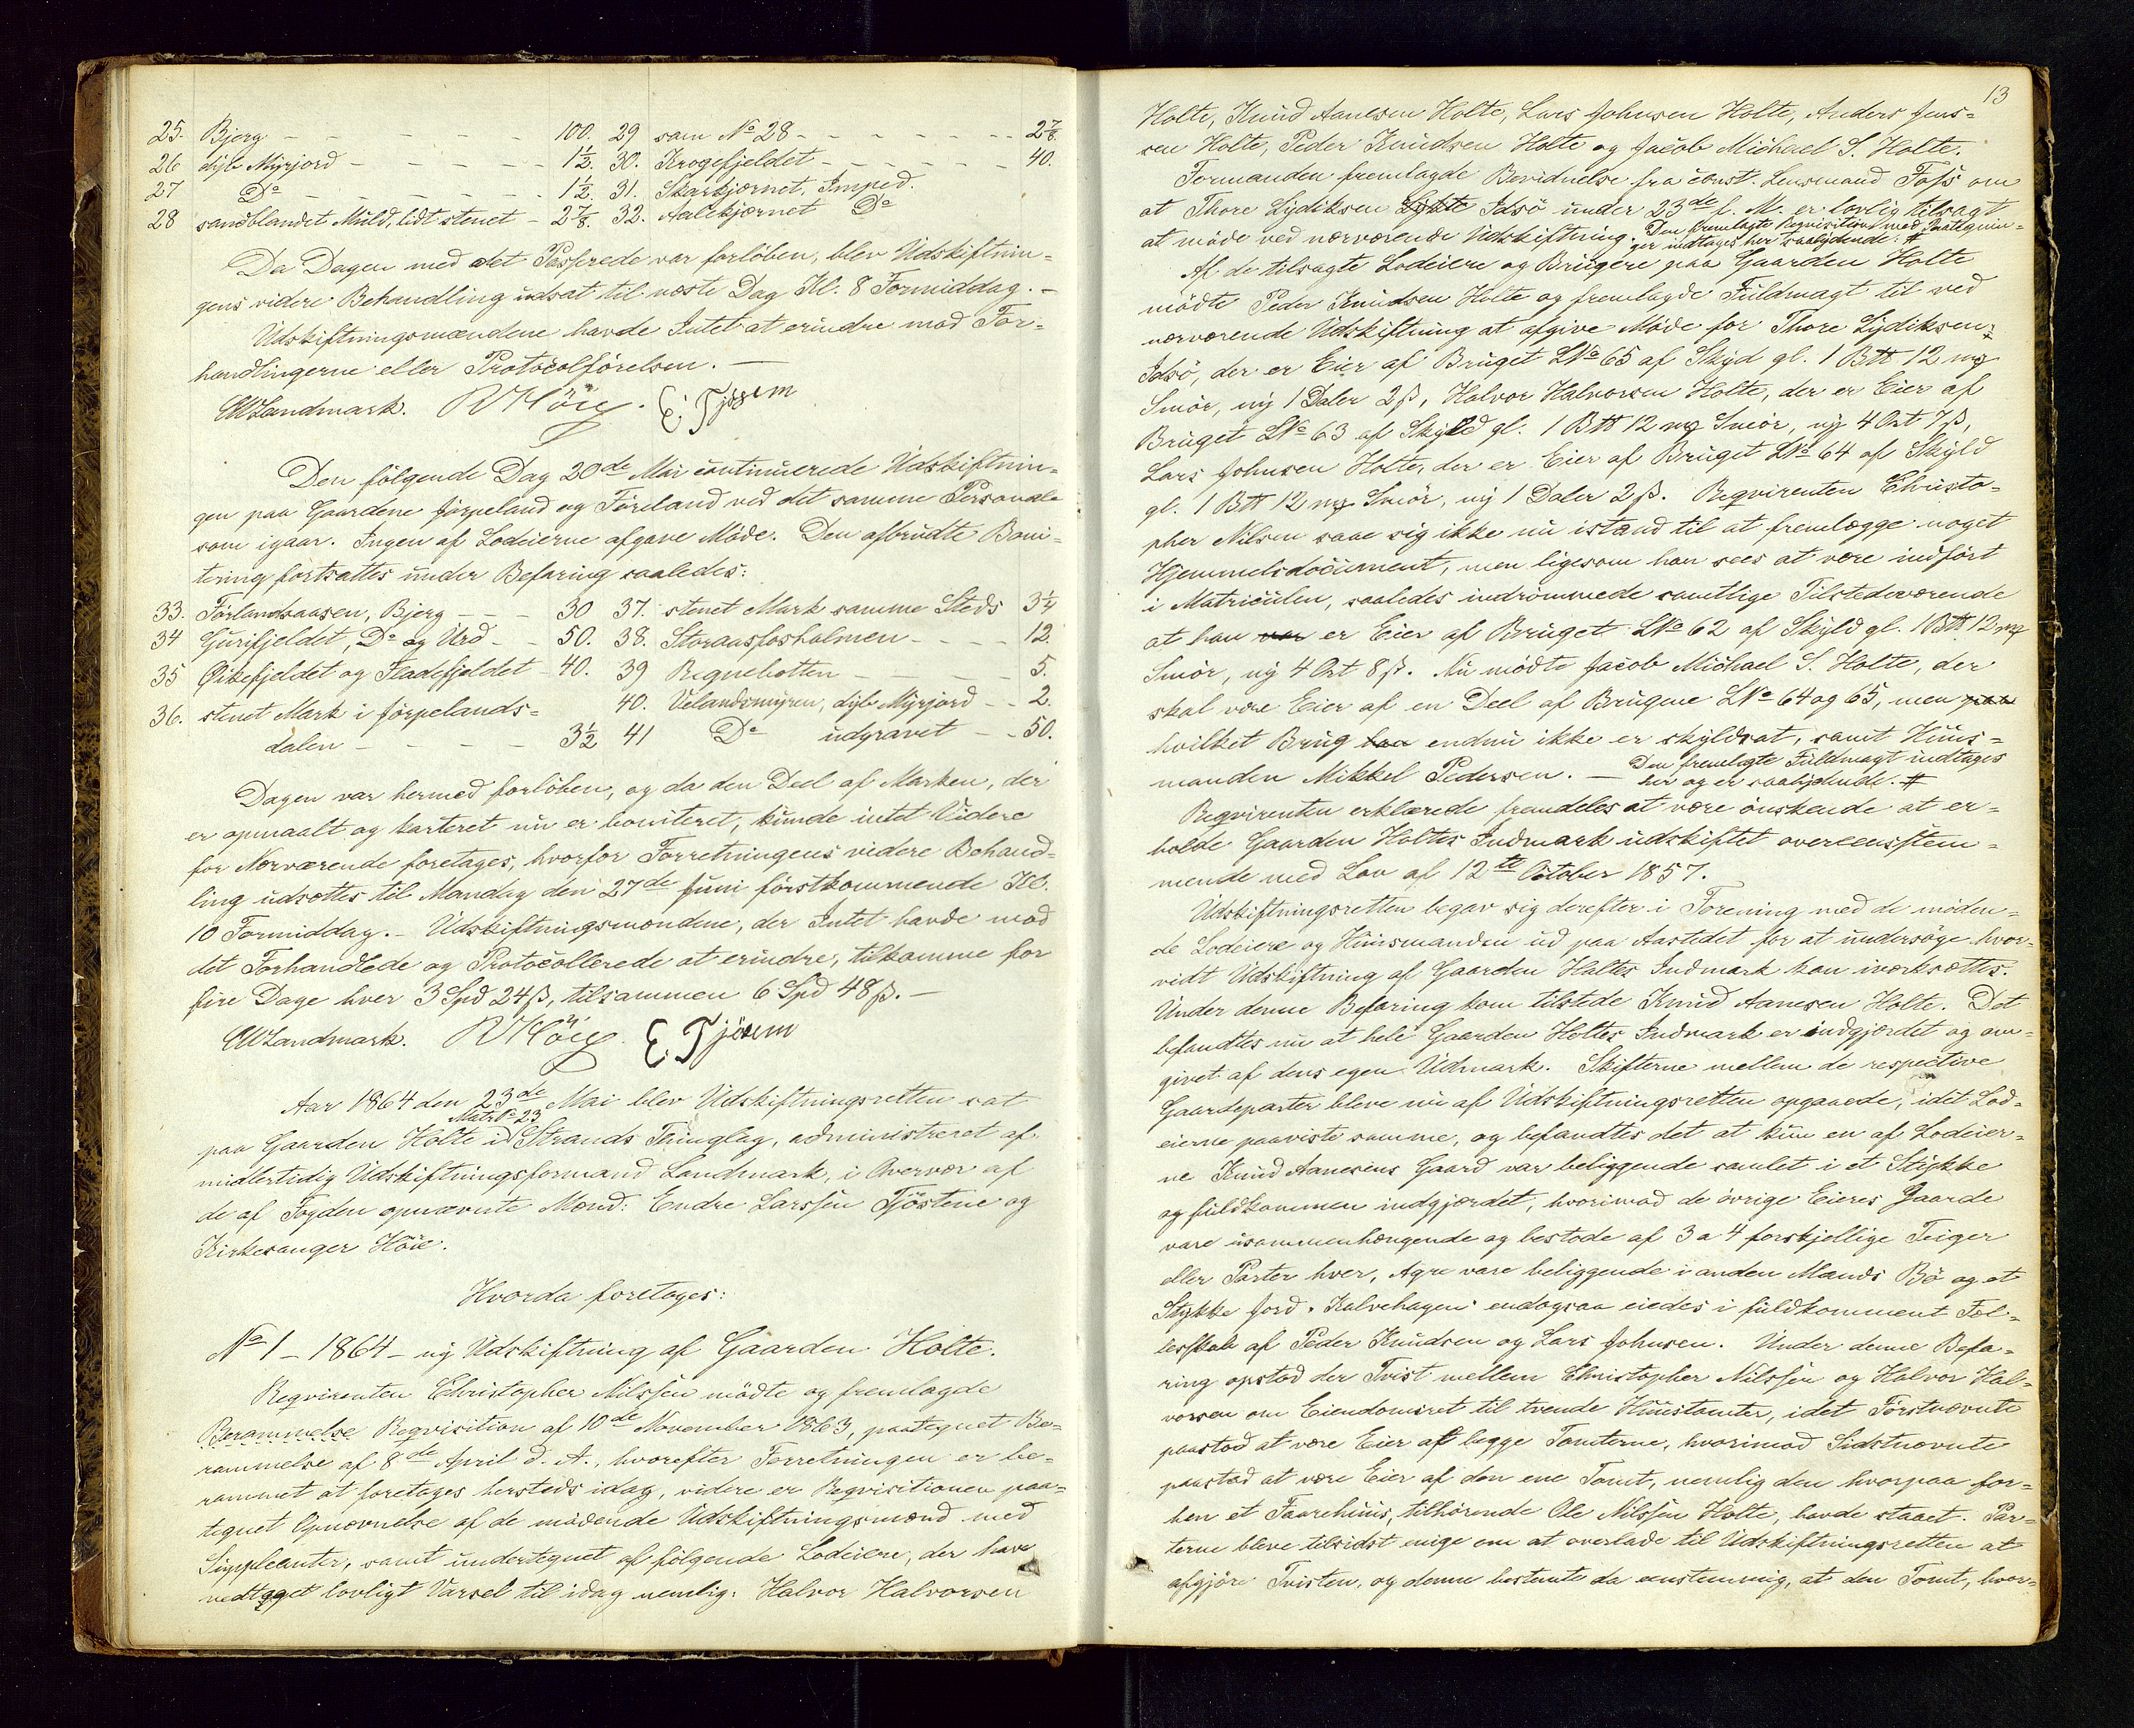 25. Bjerg - - - - - - 100. 29 som No 28 - - - - - - - 2 7/8
26 dyb Myrjord - - - - - 1 1/2. 30. Krogefjeldet - - - - - - 40.
27 Do - - - - - - 1 1/2. 31. Skarkjærnet, Imped.
28 sandblandet Muld, lidt stenet - 2 7/8. 32. Aalekjærnet Do
Da Dagen med det Passerede var forløben, blev Udskiftnin-
gens videre Behandling udsat til næste Dag Kl. 8 Formiddag. -
Udskiftningsmændene havde Intet at erindre mod For-
handlingerne eller Protocolførelsen. -
Landmark. R Høie. E. Tjøstem
Den følgende Dag 20de Mai continuerede Udskiftnin-
gen paa Gaardene Jørpeland og Førland ved det samme Personale
som igaar. Ingen af Lodeierne afgave Møde. Den afbrudte Boni-
tering fortsattes under Befaring saaledes:
33. Førlandsaasen, Bjerg - - 30 37. stenet Mark samme Steds 3 1/4
34 Gurifjeldet, Do og Urd - - 50. 38. Storaasfosholmen - - - 12.
35 Øikefjeldet og Fladefjeldet - 40. 39 Regnebotten - - - - 5.
36. stenet Mark i Jørpelands- 40. Velandsmyren, dyb Myrjord - - 2.
dalen - - - - - 3 1/2 41 Do udgravet - - 50.
Dagen var hermed forløben, og da den Deel af Marken, der
er opmaalt og karteret nu er boniteret, kunde intet Videre
for Nærværende foretages, hvorfor Forretningens videre Behand-
ling udsættes til Mandag den 27de Juni førstkommende Kl.
10 Formiddag. - Udskiftningsmændene, der Intet havde mod
det Forhandlede og Protocollerede at erindre, tilkomme for
fire Dage hver 3 Spd 24 ß, tilsammen 6 Spd 48 ß. -
Landmark. R Høie. E. Tjøstem
Aar 1864 den 23de Mai blev Udskiftningsretten sat
Matr No 23
paa Gaarden Holte i Strands Thinglag, administreret af
midlertidig Udskiftningsformand Landmark, i Overvær af
de af Fogden opnævnte Mænd: Endre Larssen Tjøstene og
Kirkesanger Høie.
Hvorda foretages:
No 1 - 1864 - ny Udskiftning af Gaarden Holte.
Reqvirenten Christopher Nilssen mødte og fremlagde
Berammelse Reqvisition af 10de November 1863, paategnet Be-
rammelse af 8de April d. A., hvorefter Forretningen er be-
rammet at foretages hersteds idag, videre er Reqvisitionen paa-
tegnet Opnævnelse af de mødende Udskiftningsmænd med
Suppleanter, samt undertegnet af følgende Lodeiere, der have
vedtaget lovligt Varsel til idag nemlig: Halvor Halvorsen
13
Holte, Knud Aanesen Holte, Lars Johnsen Holte, Anders Jens-
sen Holte, Peder Knudsen Holte og Jacob Michael S. Holte.
Formanden fremlagde Bevidnelse fra const. Lensmand Foss om
at Thore Lydiksen Idsø under 23de f. M. er lovlig tilsagt
at møde ved nærværende Udskiftning. Den fremlagte Reqvisition med Paategnin-
ger indtages her saalydende: #
Af de tilsagte Lodeiere og Brugere paa Gaarden Holte
mødte Peder Knudsen Holte og fremlagde Fuldmagt til ved
nærværende Udskiftning at afgive Møde for Thore Lydiksen
Idsø, der er Eier af Bruget LNo 65 af Skyld gl. 1 Btt 12 mk
Smør, ny 1 Daler 2 ß, Halvor Halvorsen Holte, der er Eier af
Bruget LNo 63 af Skyld gl. 1 Btt 12 mk Smør, ny 4 Ort 7 ß,
Lars Johnsen Holte, der er Eier af Bruget LNo 64 af Skyld
gl. 1 Btt 12 mk Smør, ny 1 Daler 2 ß. Reqvirenten Christo-
pher Nilsen saae sig ikke nu istand til at fremlægge noget
Hjemmelsdocument, men ligesom han sees at være indført
i Matriculen, saaledes indrømmede samtlige Tilstedeværende
at han var er Eier af Bruget LNo 62 af Skyld gl. 1 Btt 12 mk
Smør, ny 4 Ort 8 ß. Nu mødte Jacob Michael S. Holte, der
skal være Eier af en Deel af Brugene LNo 64 og 65, men
hvilket Brug endnu ikke er skyldsat, samt Huus-
manden Mikkel Pedersen. - Den fremlagte Fuldmagt indtages
her og er saalydende. #
Reqvirenten erklærede fremdeles at være ønskende at er-
holde Gaarden Holtes Indmark udskiftet overeensstem-
mende med Lov af 12te October 1857.
Udskiftningsretten begav sig derefter i Forening med de møden-
de Lodeiere og Huusmanden ud paa Aastedet for at undersøge hvor-
vidt Udskiftning af Gaarden Holtes Indmark kan iværksættes.
Under denne Befaring kom tilstede Knud Aanesen Holte. Det
befandtes nu at hele Gaarden Holtes Indmark er indgjærdet og om-
givet af dens egen Udmark. Skifterne mellem de respective
Gaardeparter bleve nu af Udskiftningsretten opgaaede, idet Lod-
eierne paaviste samme, og befandtes det at kun en af Lodeier-
ne Knud Aanesens Gaard var beliggende samlet i et Stykke
og fuldkommen indgjærdet, hvorimod de øvrige Eieres Gaarde
vare usammenhængende og bestode af 3 a 4 forskjellige Teiger
eller Parter hver, Agre vare beliggende i anden Mands Bø og et
Stykke Jord. Kalvehagen endogsaa eiedes i fuldkomment Fæl-
lesskab af Peder Knudsen og Lars Johnsen. Under denne Befa-
ring opstod der Tvist mellem Christopher Nilssen og Halvor Hal-
vorsen om Eiendomsret til tvende Huustomter, idet Førstnævnte
paastod at være Eier af begge Tomterne, hvorimod Sidstnævnte
paastod at være Eier af den ene Tomt, nemlig den hvorpaa for-
hen et Faarehuus, tilhørende Ole Nilssen Holte, havde staaet. Par-
terne bleve tilsidst enige om at overlade til Udskiftningsretten at
afgjøre Tvisten, og denne bestemte da eenstemmig, at den Tomt, hvor-